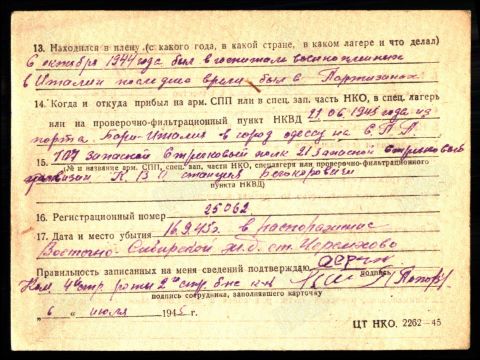 13. Находился в плену (с какого года, в какой стране, в каком лагере и что делал)
6 октября 1944 года был в госпитале военнопленных
в Италии последнее время был в Партизанах
14. Когда и откуда прибыл на арм. СПП или в спец. зап. часть НКО, в спец. лагерь
или на проверочно-фильтрационный пункт НКВД 21.06.1945 года из
порта Бари-Италия в город одессу на С.П.П.
15. 107 Запасной Стрелковый полк 21 Запасной Стрелковой
(№ и название арм. СПП, спец. зап. части НКО, спецлагеря или проверочно-фильтрационного
дивизии станция
пункта НКВД)
16. Регистрационный номер 25062
17. Дата и место убытия 16.9.45г. в распоряжение
Восточно-Сибирской ж.д. ст. Черемхово
Правильность записанных на меня сведений подтверждаю
подпись
Ком. 4й стр роты 2го стр б-на
подпись сотрудника, заполнявшего карточку
„ 6 “ июля 1945 г.
ЦТ НКО. 2262—45